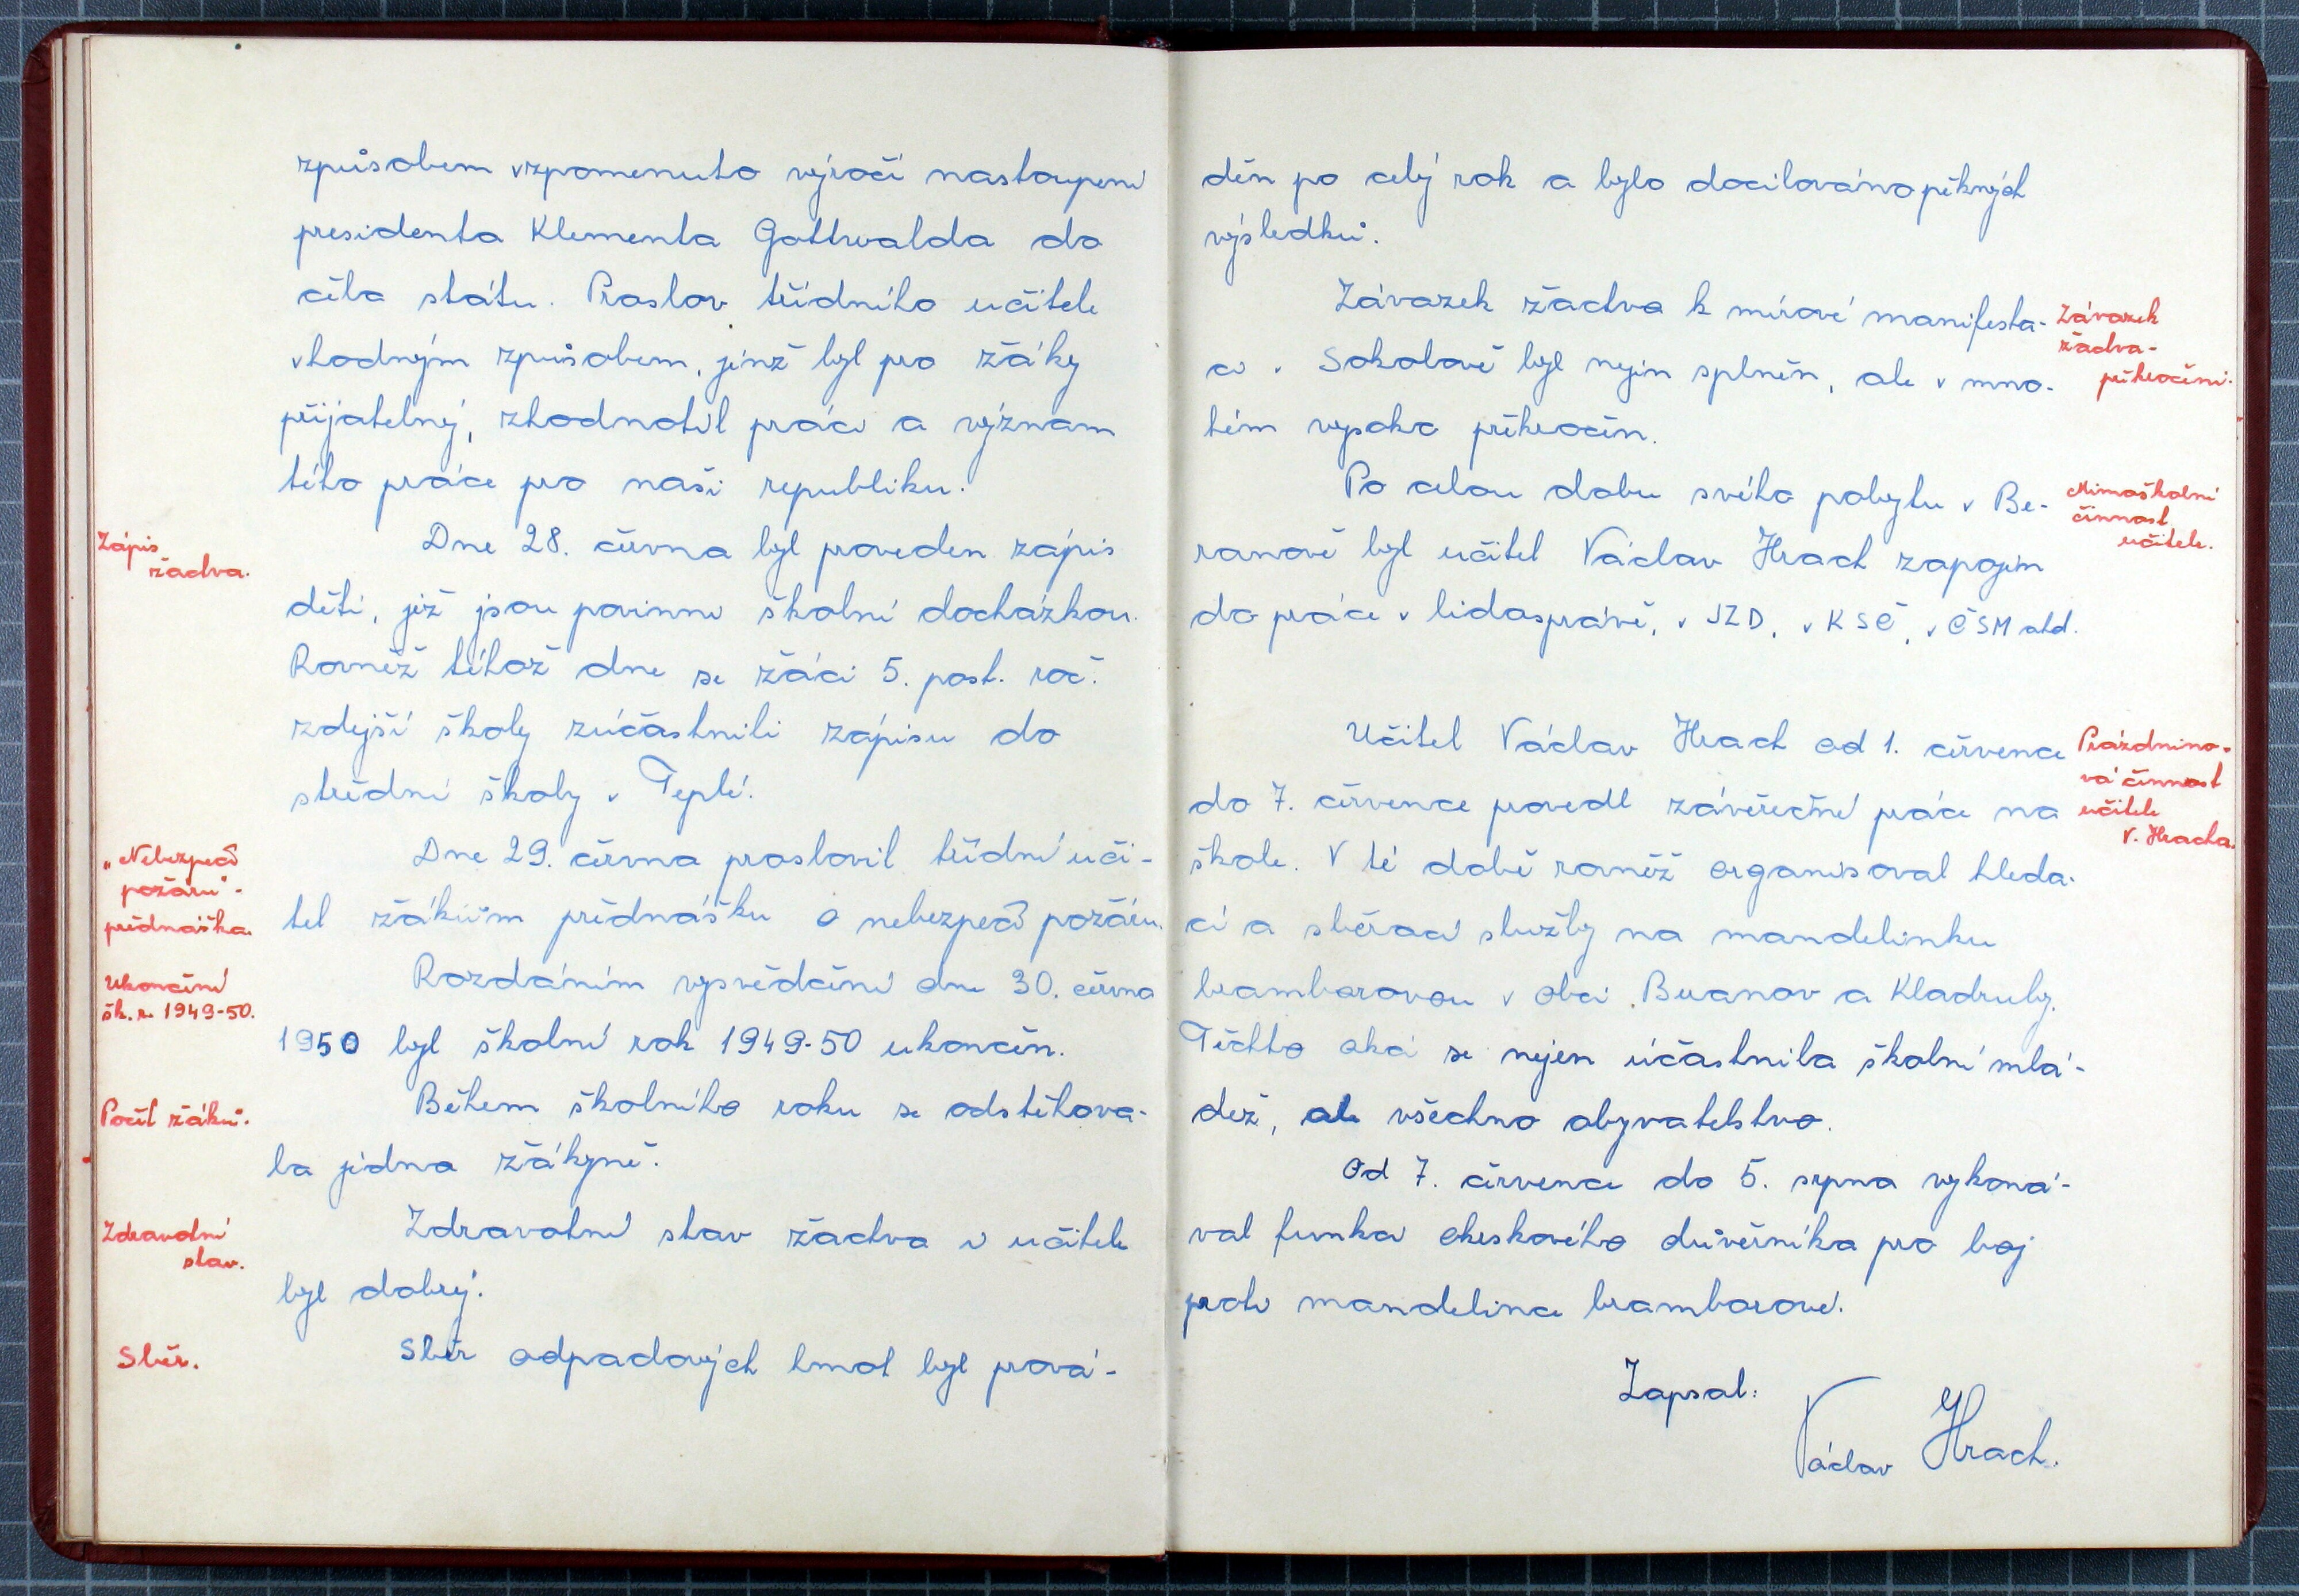 způsobem vzpomenuto výročí nastoupení
presidenta Klementa Gottwalda do
čela státu. Proslov třídního učitele
vhodným způsobem, jenž byl pro žáky
přijatelný, zhodnotil práci a význam
této práce pro naši republiku.
Zápis
žactva.
Dne 28. června byl proveden zápis
dětí, jež jsou povinni školní docházkou.
Rovněž téhož dne se žáci 5. post. roč.
zdejší školy zúčastnili zápisu do
střední školy v Teplé.
„Nebezpečí
požáru"-
přednáška.
Dne 29. června proslovil třídní uči-
tel žákům přednášku o nebezpečí požáru.
Ukončení
šk. r. 1949-50.
Rozdáním vysvědčení dne 30. června
1950 byl školní rok 1949-50 ukončen.
Počet žáků.
Během školního roku se odstěhova-
la jedna žákyně.
Zdravotní
stav.
Zdravotní stav žactva i učitele
byl dobrý.
Sběr.
Sběr odpadových hmot byl prová-
děn po celý rok a bylo docilováno pěkných
výsledků.
Závazek
žactva-
překročení.
Závazek žactva k mírové manifesta-
ci v Sokolově byl nejen splněn, ale v mno-
hém vysoko překročen.
Mimoškolní
činnost
učitele.
Po celou dobu svého pobytu v Be-
ranově byl učitel Václav Hrach zapojen
do práce v lidosprávě, v JZD, v KSČ, v ČSM atd.
Prázdnino-
vá činnost
učitele
V. Hracha.
Učitel Václav Hrach od 1. července
do 7. července provedl závěrečné práce na
škole. V té době rovněž organisoval hleda-
cí a sběrací služby na mandelinku
bramborovou v obci Beranov a Kladruby.
Těchto akcí se nejen účastnila školní mlá-
dež, ale všechno obyvatelstvo.
Od 7. července do 5. srpna vykoná-
val funkci okrskového důvěrníka pro boj
proti mandelince bramborové.
Zapsal:
Václav Hrach.